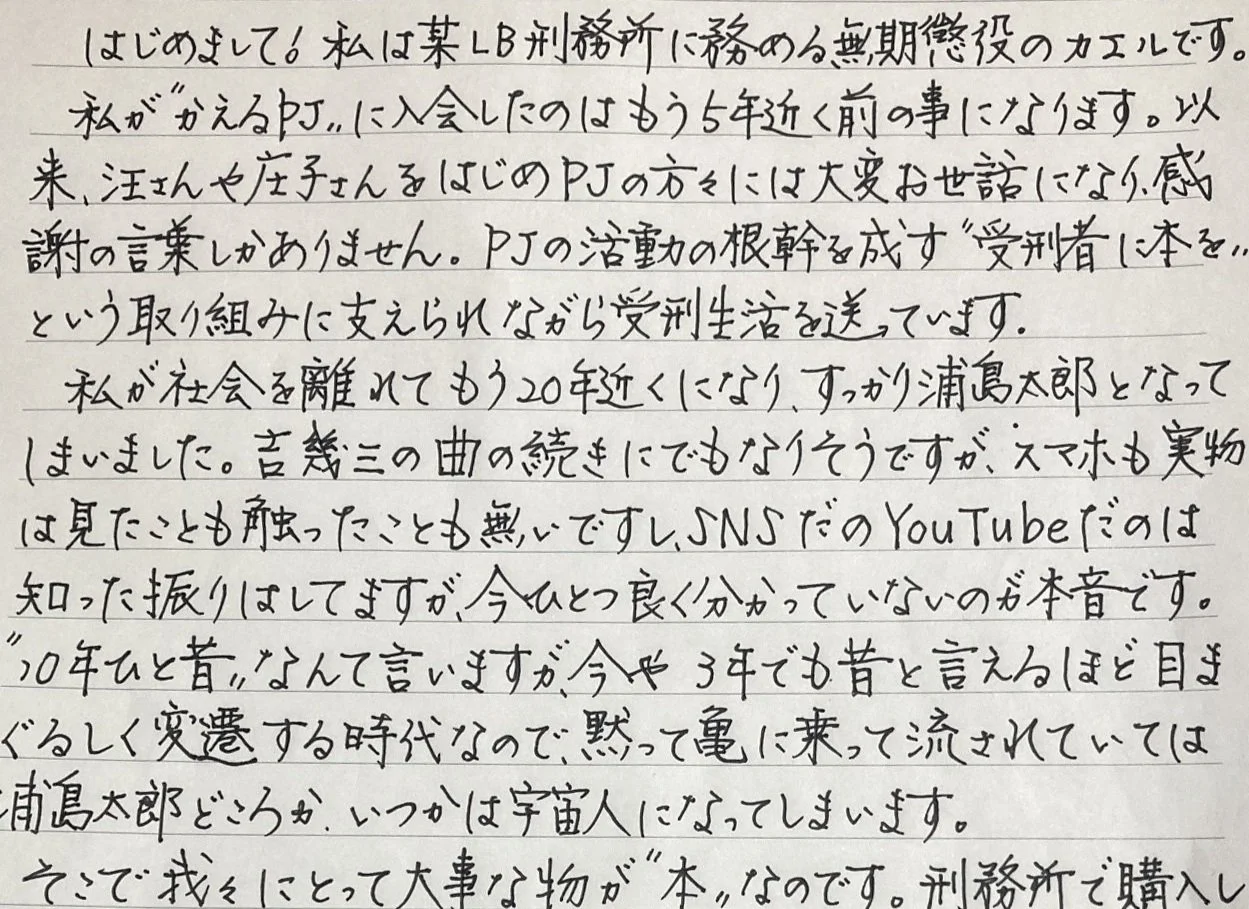 はじめまして！私は某LB刑務所に務める無期懲役のカエルです。
私が〝かえるPJ〟に入会したのはもう5年近く前の事になります。以
来、汪さんや庄子さんをはじめPJの方々には大変お世話になり、感
謝の言葉しかありません。PJの活動の根幹を成す〝受刑者に本を〟
という取り組みに支えられながら受刑生活を送っています。
私が社会を離れてもう20年近くになり、すっかり浦島太郎となって
しまいました。吉幾三の曲の続きにでもなりそうですが、スマホも実物
は見たことも触ったことも無いですし、SNSだのYouTubeだのは
知った振りはしてますが、今ひとつ良く分かっていないのが本音です。
〝10年ひと昔〟なんて言いますが、今や3年でも昔と言えるほど目ま
ぐるしく変遷する時代なので、黙って亀に乗って流されていては
浦島太郎どころか、いつかは宇宙人になってしまいます。
そこで我々にとって大事な物が〝本〟なのです。刑務所で購入し